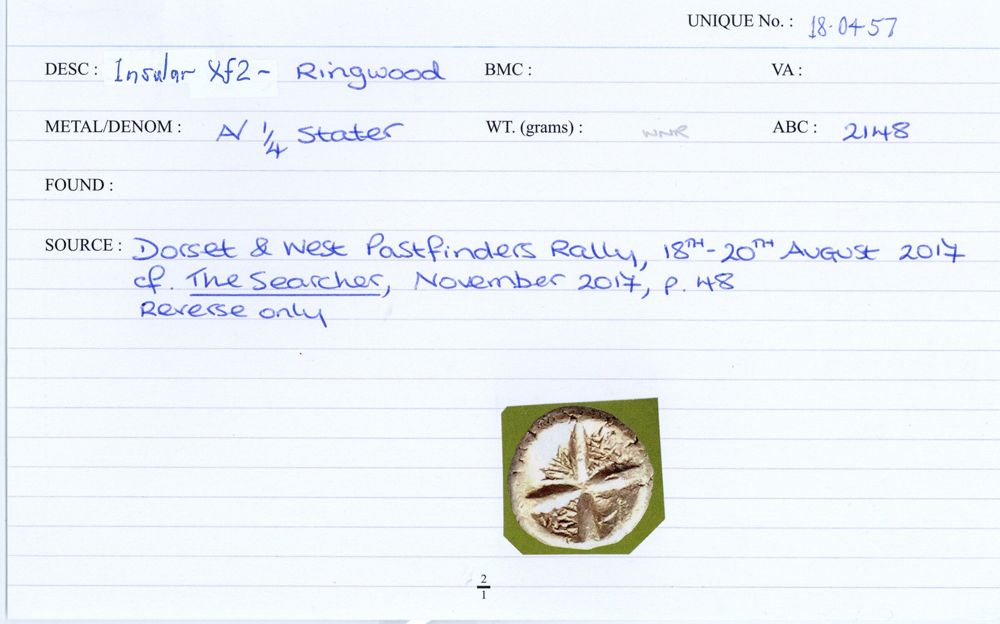 UNIQUE No. : 18·04·57
DESC : Insular Xf2 - Ringwood BMC : VA :
METAL/DENOM : A/ 1/4 Stater WT. (grams) : WNR ABC : 2148
FOUND :
SOURCE : Dorset & West Pastfinders Rally, 18TH-20TH AUGUST 2017
cf. The Searcher, November 2017, p. 48
Reverse only
2
1